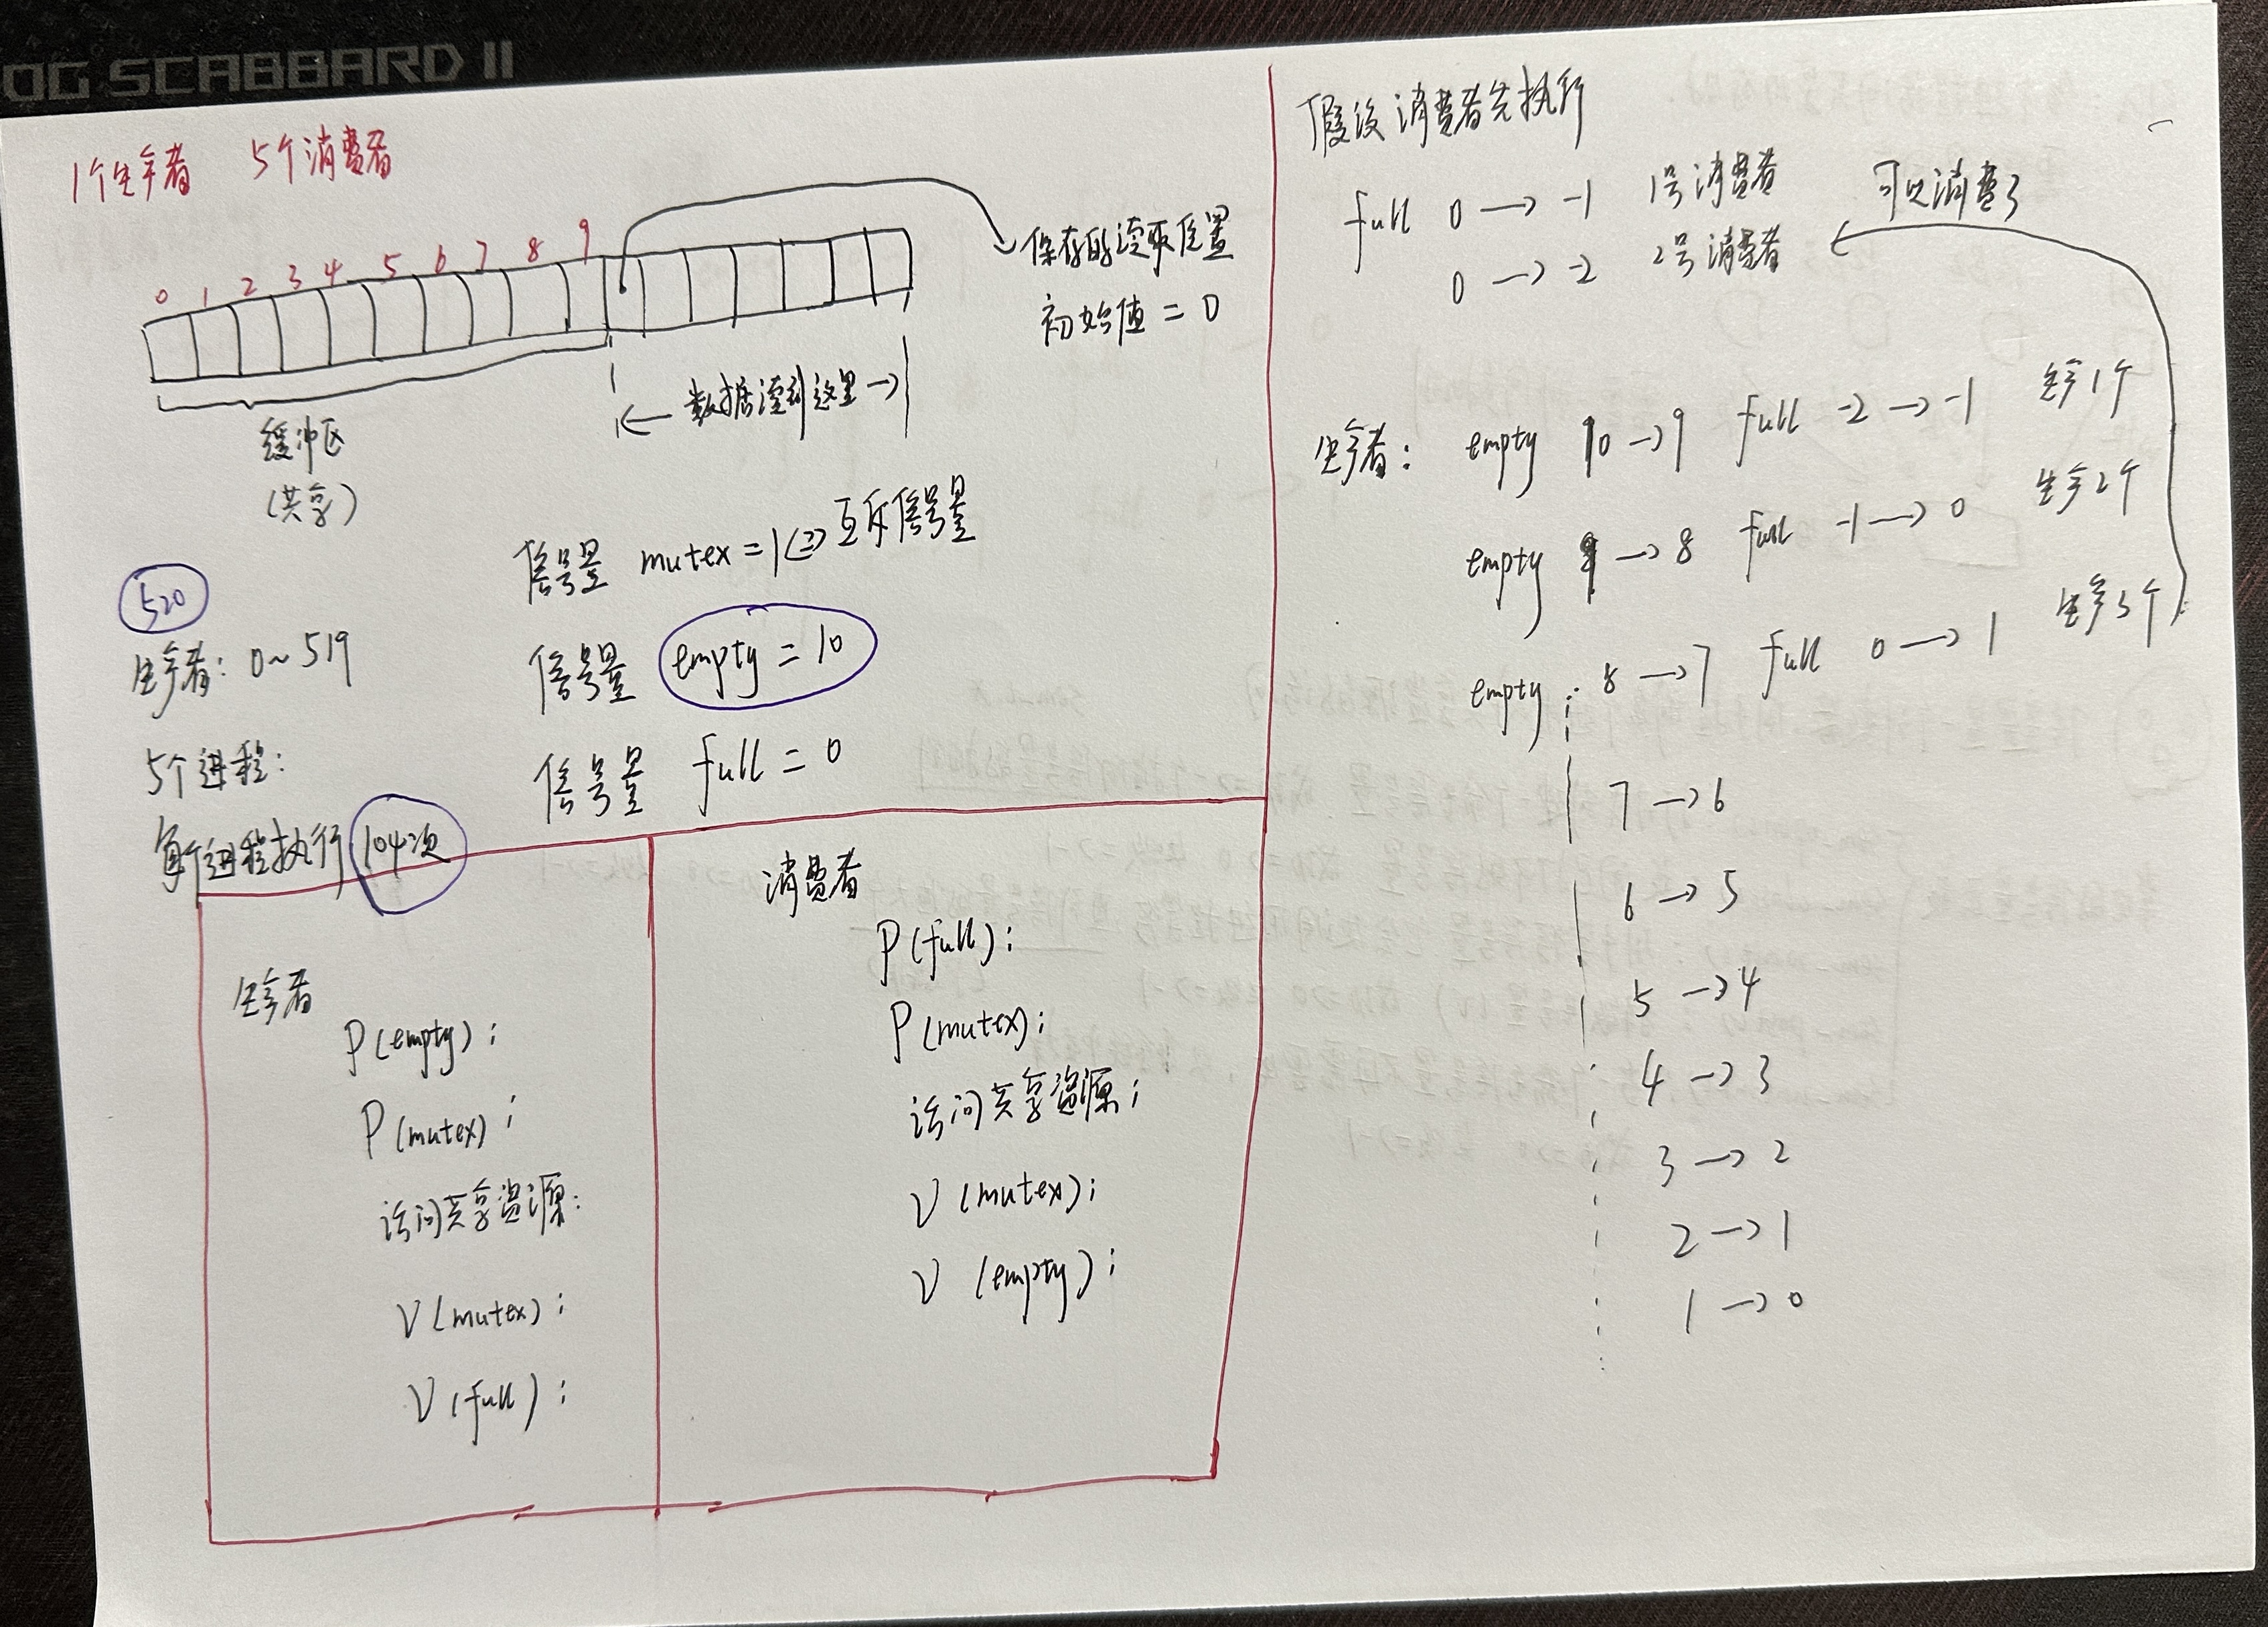 OG SCABBARD II
1个生产者 5个消费者
0 1 2 3 4 5 6 7 8 9
保存的读取位置
初始值 = 0
← 数据读到这里 →
缓冲区
(共享)
信号量 mutex = 1 <=> 互斥信号量
520
生产者: 0~519
信号量 empty = 10
5个进程:
信号量 full = 0
每个进程执行 104次
生产者
P(empty);
P(mutex);
访问共享资源;
V(mutex);
V(full);
消费者
P(full);
P(mutex);
访问共享资源;
V(mutex);
V(empty);
假设消费者先执行
full 0 → -1 1号消费者
0 → -2 2号消费者
可以消费了
生产者: empty 10 → 9 full -2 → -1 生产1个
empty 9 → 8 full -1 → 0 生产2个
empty 8 → 7 full 0 → 1 生产3个
7 → 6
6 → 5
5 → 4
4 → 3
3 → 2
2 → 1
1 → 0